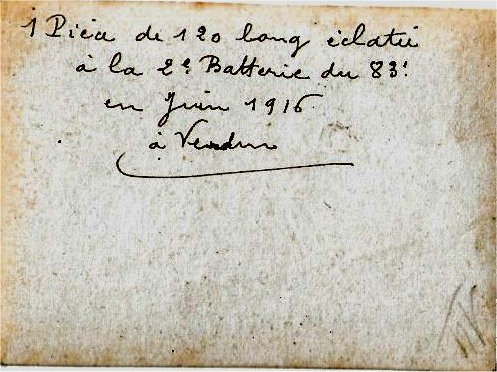 1 Pièce de 120 long éclatée
à la 2e Batterie du 83e
en Juin 1916
à Verdun